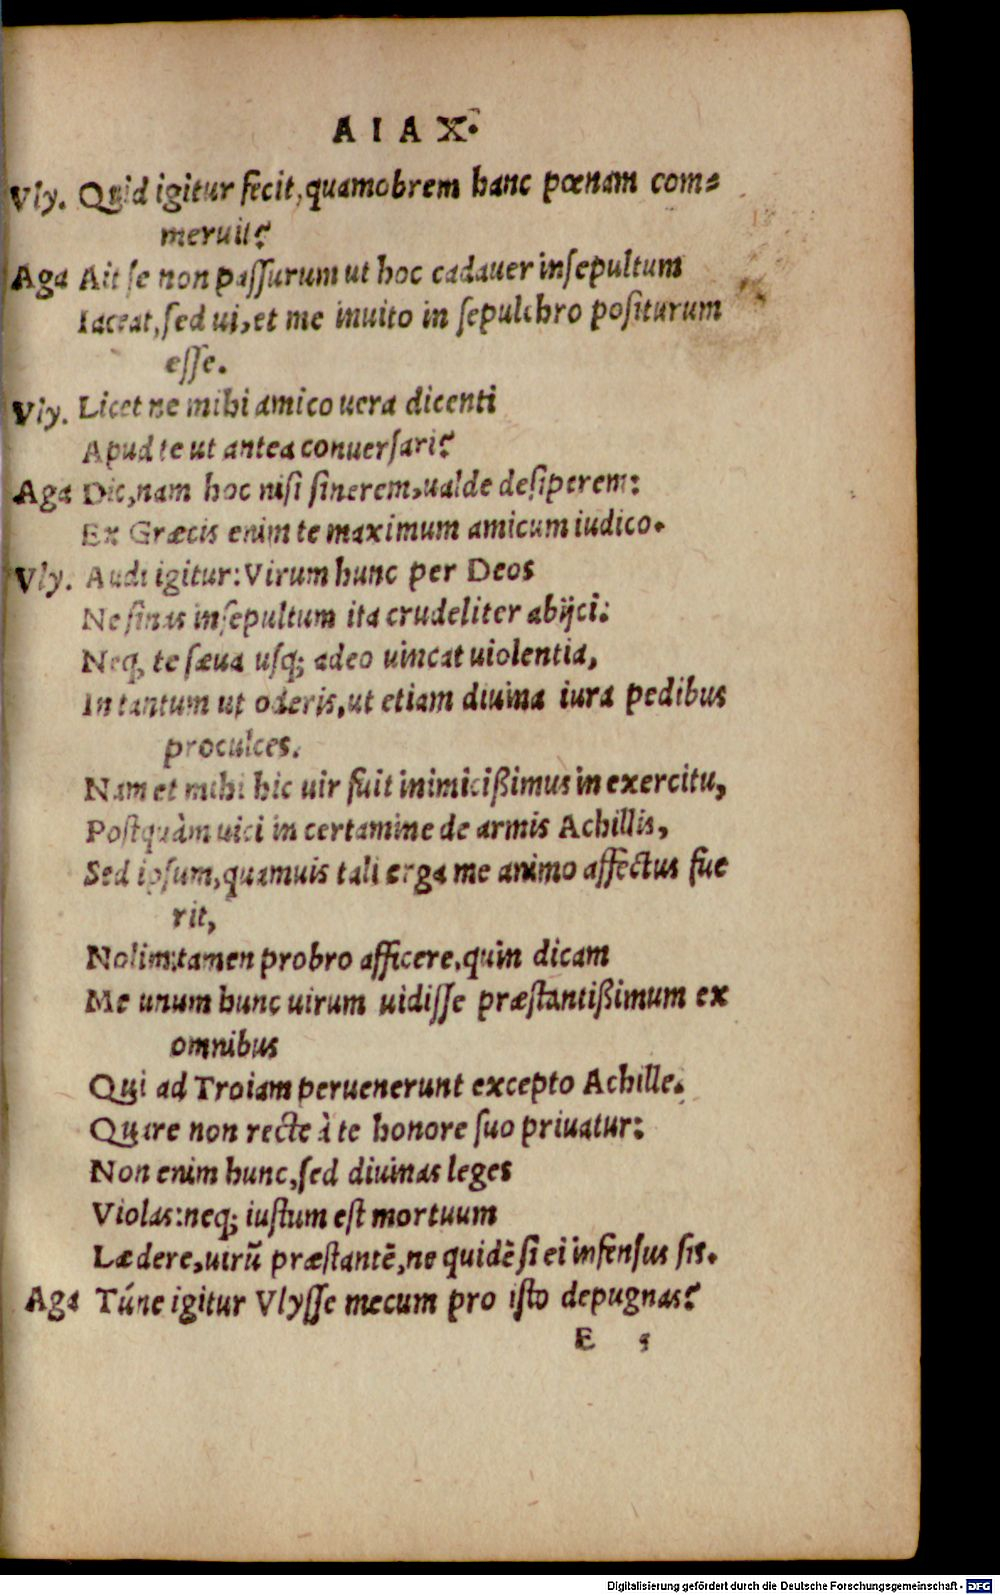 AIAX.
Vly. Quid igitur fecit, quamobrem hanc pœnam com-
meruit?
Aga Ait se non passurum ut hoc cadauer insepultum
Iaceat, sed ui, et me inuito in sepulchro positurum
esse.
Vly. Licet ne mihi amico uera dicenti
Apud te ut antea conuersari?
Aga Dic, nam hoc nisi sinerem, ualde desiperem:
Ex Græcis enim te maximum amicum iudico.
Vly. Audi igitur: Virum hunc per Deos
Ne sinas insepultum ita crudeliter abijci:
Neq; te sæua usq; adeo uincat uiolentia,
In tantum ut oderis, ut etiam diuina iura pedibus
proculces.
Nam et mihi hic uir fuit inimicißimus in exercitu,
Postquàm uici in certamine de armis Achillis,
Sed ipsum, quamuis tali erga me animo affectus fue
rit,
Nolim: tamen probro afficere, quin dicam
Me unum hunc uirum uidisse præstantißimum ex
omnibus
Qui ad Troiam peruenerunt excepto Achille.
Quare non recte à te honore suo priuatur:
Non enim hunc, sed diuinas leges
Violas: neq; iustum est mortuum
Lædere, uirũ præstantē, ne quidē si ei infensus sis.
Aga Túne igitur Vlysse mecum pro isto depugnas?
E 5
Digitalisierung gefördert durch die Deutsche Forschungsgemeinschaft - DFG